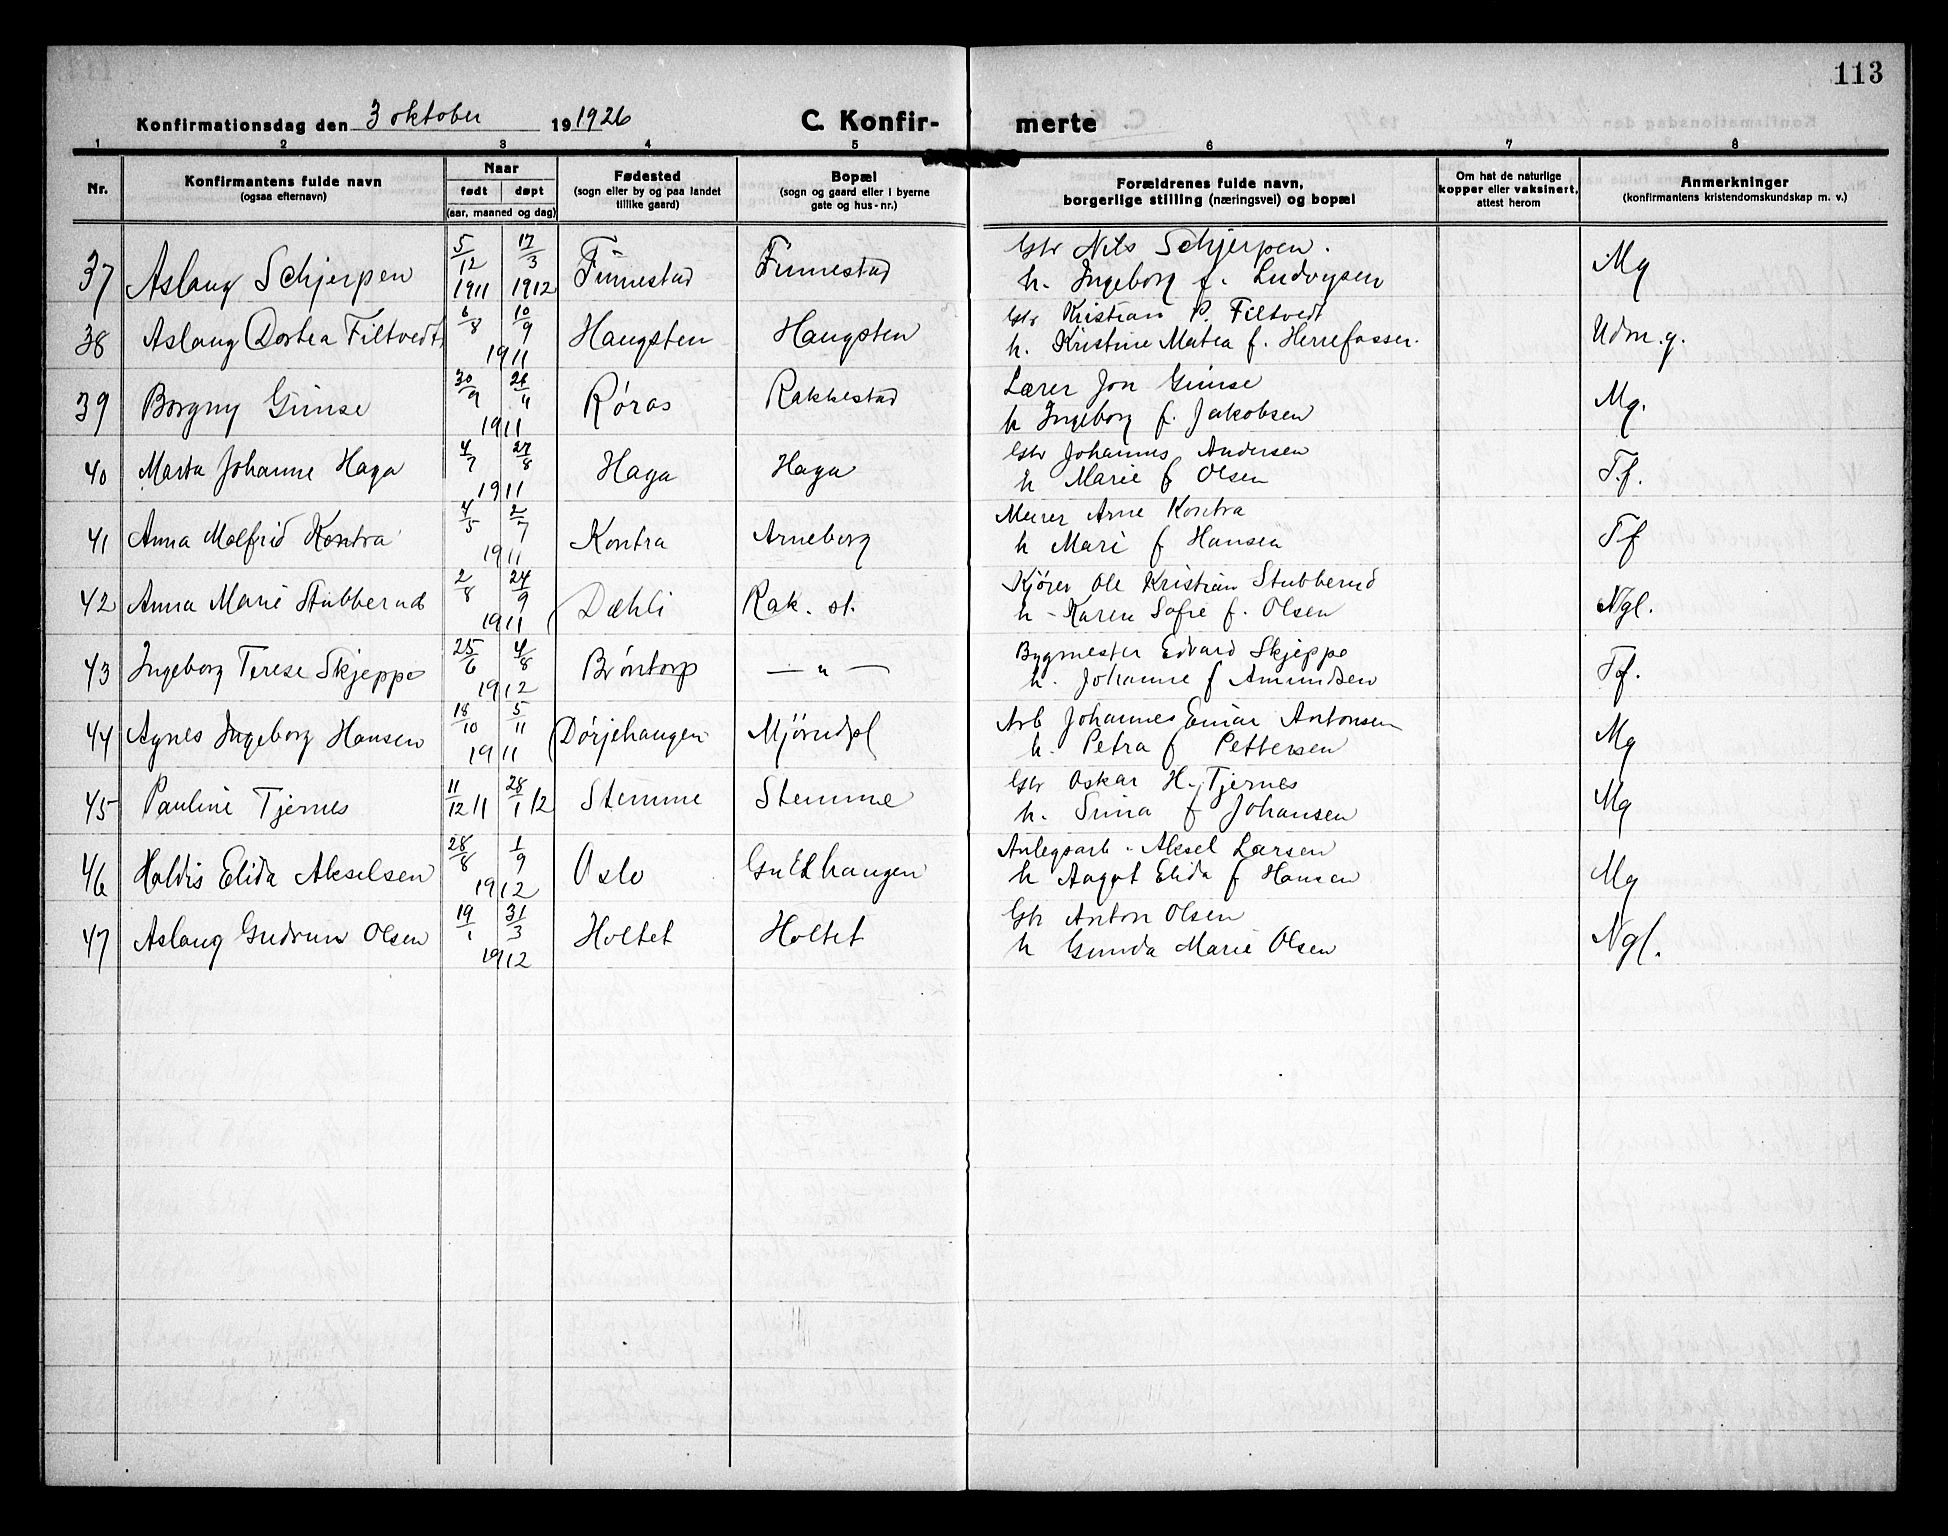 113
Konfirmationsdag den 3 oktober 19 1926 C. Konfir- merte
1 2 3 4 5 6 7 8
Nr.
Konfirmantens fulde navn
(ogsaa efternavn)
Naar
født døpt
(aar, maaned og dag)
Fødested
(sogn eller by og paa landet
tillike gaard)
Bopæl
(sogn og gaard eller i byerne
gate og hus-nr.)
Forældrenes fulde navn,
borgerlige stilling (næringsvei) og bopæl
Om hat de naturlige
kopper eller vaksinert,
attest herom
Anmerkninger
(konfirmantens kristendomskundskap m. v.)
37 Aslaug Schjerpen 5/12 1911 17/3 1912 Finnestad Finnestad Gbr Nils Schjerpen. Mg
h. Ingeborg f. Ludvigsen
38 Aslaug Dortea Filtvedt 6/8 10/9 1911 Haugsten Haugsten Gbr Kristian P. Filtvedt Udm.g.
h. Kristine Matea f. Herrefosser.
39 Borgny Gimse 30/9 26/11 1911 Røros Rakkestad Lærer Jon Gimse Mg.
h Ingeborg f. Jakobsen
40 Marta Johanne Haga 4/7 27/8 1911 Haga Haga Gbr Johannes Andersen T.f.
h Marie f Olsen
41 Anna Molfrid Kontra 4/5 2/7 1911 Kontra Arneborg Murer Arne Kontra Tf
h Mari f Hansen
42 Anna Marie Stubberud 2/8 24/9 1911 Dæhli Rak. st. Kjører Ole Kristian Stubberud Ngl.
h - Karen Sofie f. Olsen
43 Ingeborg Terese Skjeppe 25/6 4/8 1912 Brøntorp — " — Bygmester Edvard Skjeppe Tf.
h. Johanne f Amundsen
44 Agnes Ingeborg Hansen 18/10 5/11 1911 Dørjehaugen Mjørudpl Arb Johannes Einar Antonsen Mg
h. Petra f Pettersen
45 Pauline Tjernes 11/12 11 28/1 12 Stemme Stemme Gbr Oskar H. Tjernes Mg
h. Sina f Johansen
46 Haldis Elida Akselsen 28/8 1/9 1912 Oslo Guldhaugen Anlegsarb. Aksel Larsen Mg
h Aagot Elida f Hansen
47 Aslaug Gudrun Olsen 19/1 31/3 1912 Holtet Holtet Gbr Anton Olsen Ngl.
h Gunda Marie Olsen